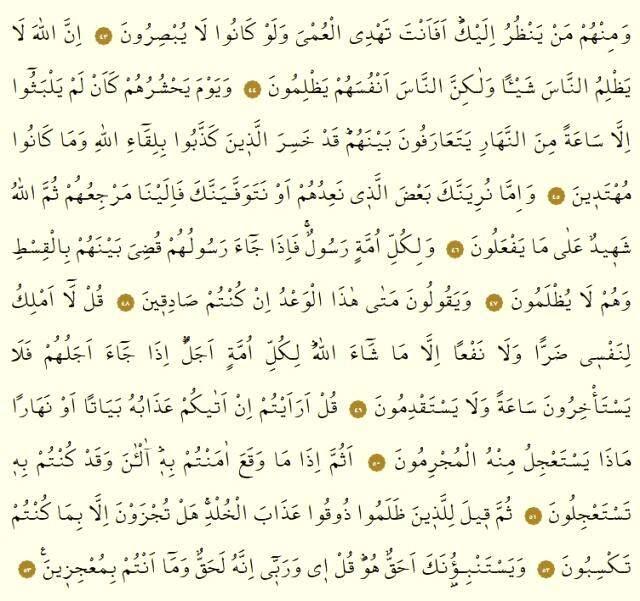 وَمِنْهُمْ مَنْ يَنْظُرُ اِلَيْكَۜ اَفَاَنْتَ تَهْدِي الْعُمْيَ وَلَوْ كَانُوا لَا يُبْصِرُونَ ٤٣ اِنَّ اللّٰهَ لَا
يَظْلِمُ النَّاسَ شَيْـٔاً وَلٰكِنَّ النَّاسَ اَنْفُسَهُمْ يَظْلِمُونَ ٤٤ وَيَوْمَ يَحْشُرُهُمْ كَاَنْ لَمْ يَلْبَثُٓوا
اِلَّا سَاعَةً مِنَ النَّهَارِ يَتَعَارَفُونَ بَيْنَهُمْۜ قَدْ خَسِرَ الَّذ۪ينَ كَذَّبُوا بِلِقَٓاءِ اللّٰهِ وَمَا كَانُوا
مُهْتَد۪ينَ ٤٥ وَاِمَّا نُرِيَنَّكَ بَعْضَ الَّذ۪ي نَعِدُهُمْ اَوْ نَتَوَفَّيَنَّكَ فَاِلَيْنَا مَرْجِعُهُمْ ثُمَّ اللّٰهُ
شَه۪يدٌ عَلٰى مَا يَفْعَلُونَ ٤٦ وَلِكُلِّ اُمَّةٍ رَسُولٌۚ فَاِذَا جَٓاءَ رَسُولُهُمْ قُضِيَ بَيْنَهُمْ بِالْقِسْطِ
وَهُمْ لَا يُظْلَمُونَ ٤٧ وَيَقُولُونَ مَتٰى هٰذَا الْوَعْدُ اِنْ كُنْتُمْ صَادِق۪ينَ ٤٨ قُلْ لَٓا اَمْلِكُ
لِنَفْس۪ي ضَراًّ وَلَا نَفْعاً اِلَّا مَا شَٓاءَ اللّٰهُۜ لِكُلِّ اُمَّةٍ اَجَلٌۜ اِذَا جَٓاءَ اَجَلُهُمْ فَلَا
يَسْتَأْخِرُونَ سَاعَةً وَلَا يَسْتَقْدِمُونَ ٤٩ قُلْ اَرَاَيْتُمْ اِنْ اَتٰيكُمْ عَذَابُهُ بَيَاتاً اَوْ نَهَاراً
مَاذَا يَسْتَعْجِلُ مِنْهُ الْمُجْرِمُونَ ٥٠ اَثُمَّ اِذَا مَا وَقَعَ اٰمَنْتُمْ بِه۪ۜ آٰلْـٰٔنَ وَقَدْ كُنْتُمْ بِه۪
تَسْتَعْجِلُونَ ٥١ ثُمَّ ق۪يلَ لِلَّذ۪ينَ ظَلَمُوا ذُوقُوا عَذَابَ الْخُلْدِۚ هَلْ تُجْزَوْنَ اِلَّا بِمَا كُنْتُمْ
تَكْسِبُونَ ٥٢ وَيَسْتَنْبِؤُ۫نَكَ اَحَقٌّ هُوَۜ قُلْ ا۪ي وَرَبّ۪ٓي اِنَّهُ لَحَقٌّ وَمَٓا اَنْتُمْ بِمُعْجِز۪ينَ۟ ٥٣